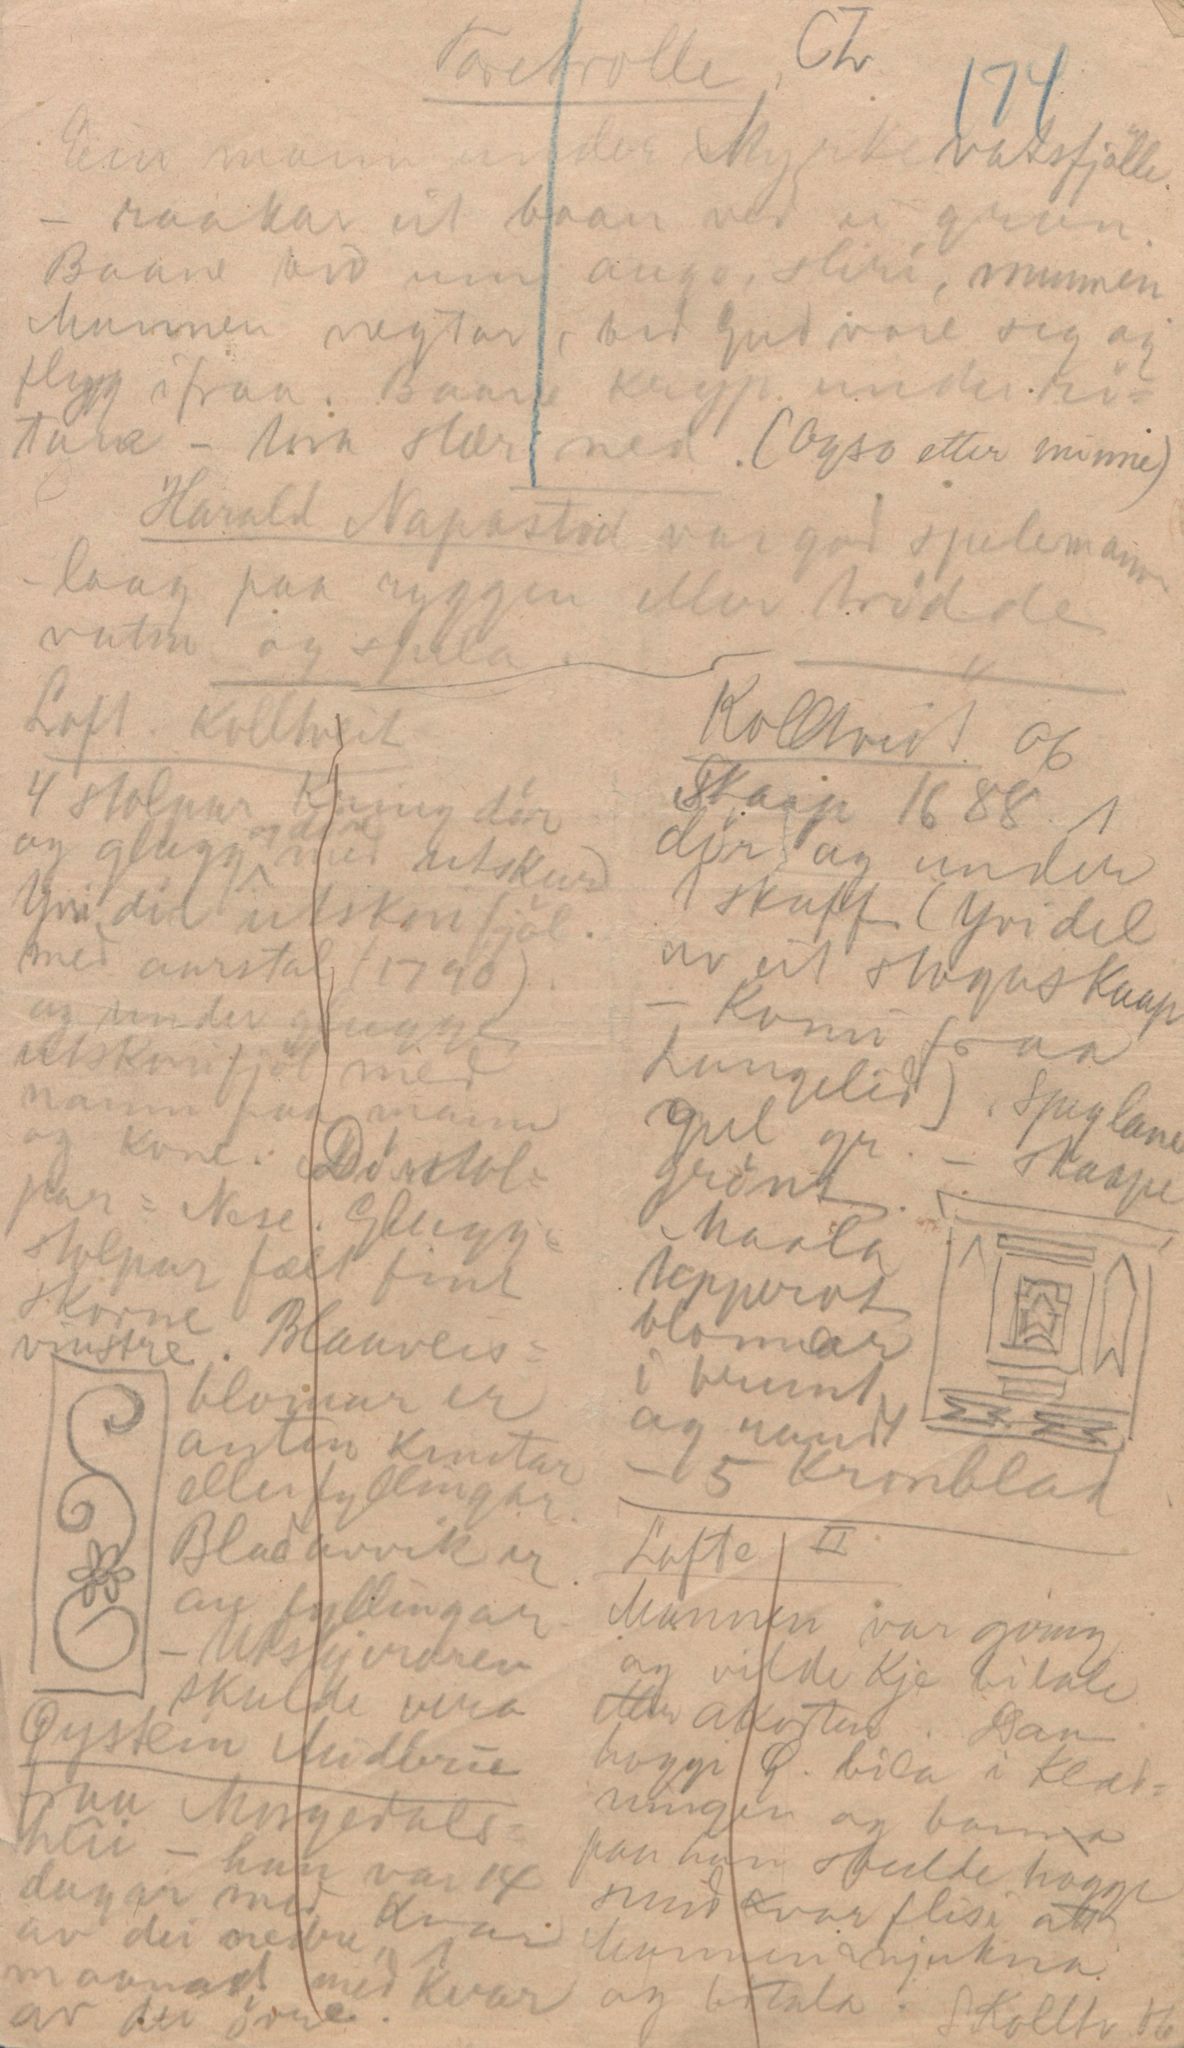 Toretrolle, Ch
174
Ein mann under Myrkevatsfjölle.
- raakar eit baan ved ei gran.
Baane bid um augo, sliri, munnen
Mannen negtar, bid Gud vare seg og
flyg ifraa. Baane kryp under rö=
tane - tora slær ned. (Ogso etter minne)
Harald Napastod var god spelemann
- laag paa ryggen eller trödde
vatn og spela.
Loft. Kolltveit
4 stolpar kring dör
og glugg og dört med utskurd
Yvi dör utskori fjöl.
med aarstal (1790).
og under glugge
utskori fjöl med
namn paa mann
og kone. Dörstol=
par = Nese. Glugg=
stolpar fælt fint
skorne
vinstre. Blauveis=
blomar er
anten knutar
eller fyllingar.
Bladavvik er
are fyllingar
- Utskjeraren
skulde vera
Öystein Midböe
fraa Morgedals=
hei - han var 14
dagar med kvar
av dei nedre, 1
maanad med kvar
av dei övre.
Kolltveit 06
Skaap 1688. 1
dör og under
1 skuff (Yvidel
av eit stogeskaap
- komi fraa
Lungelid). Speglane
gul gr. - skaape
grönt.
Maala
tepperot
blomar
i brunt
og raudt
- 5 kronblad
Lofte II
Mannen var gjerug
og vilde kje betale
etter akorten. Dan
hoggi Ö. bila i klæd=
ningen og banna
paa han skulde hogge
sund kvar flisi
Mannen mjukna
og betala. S Kolltv 06